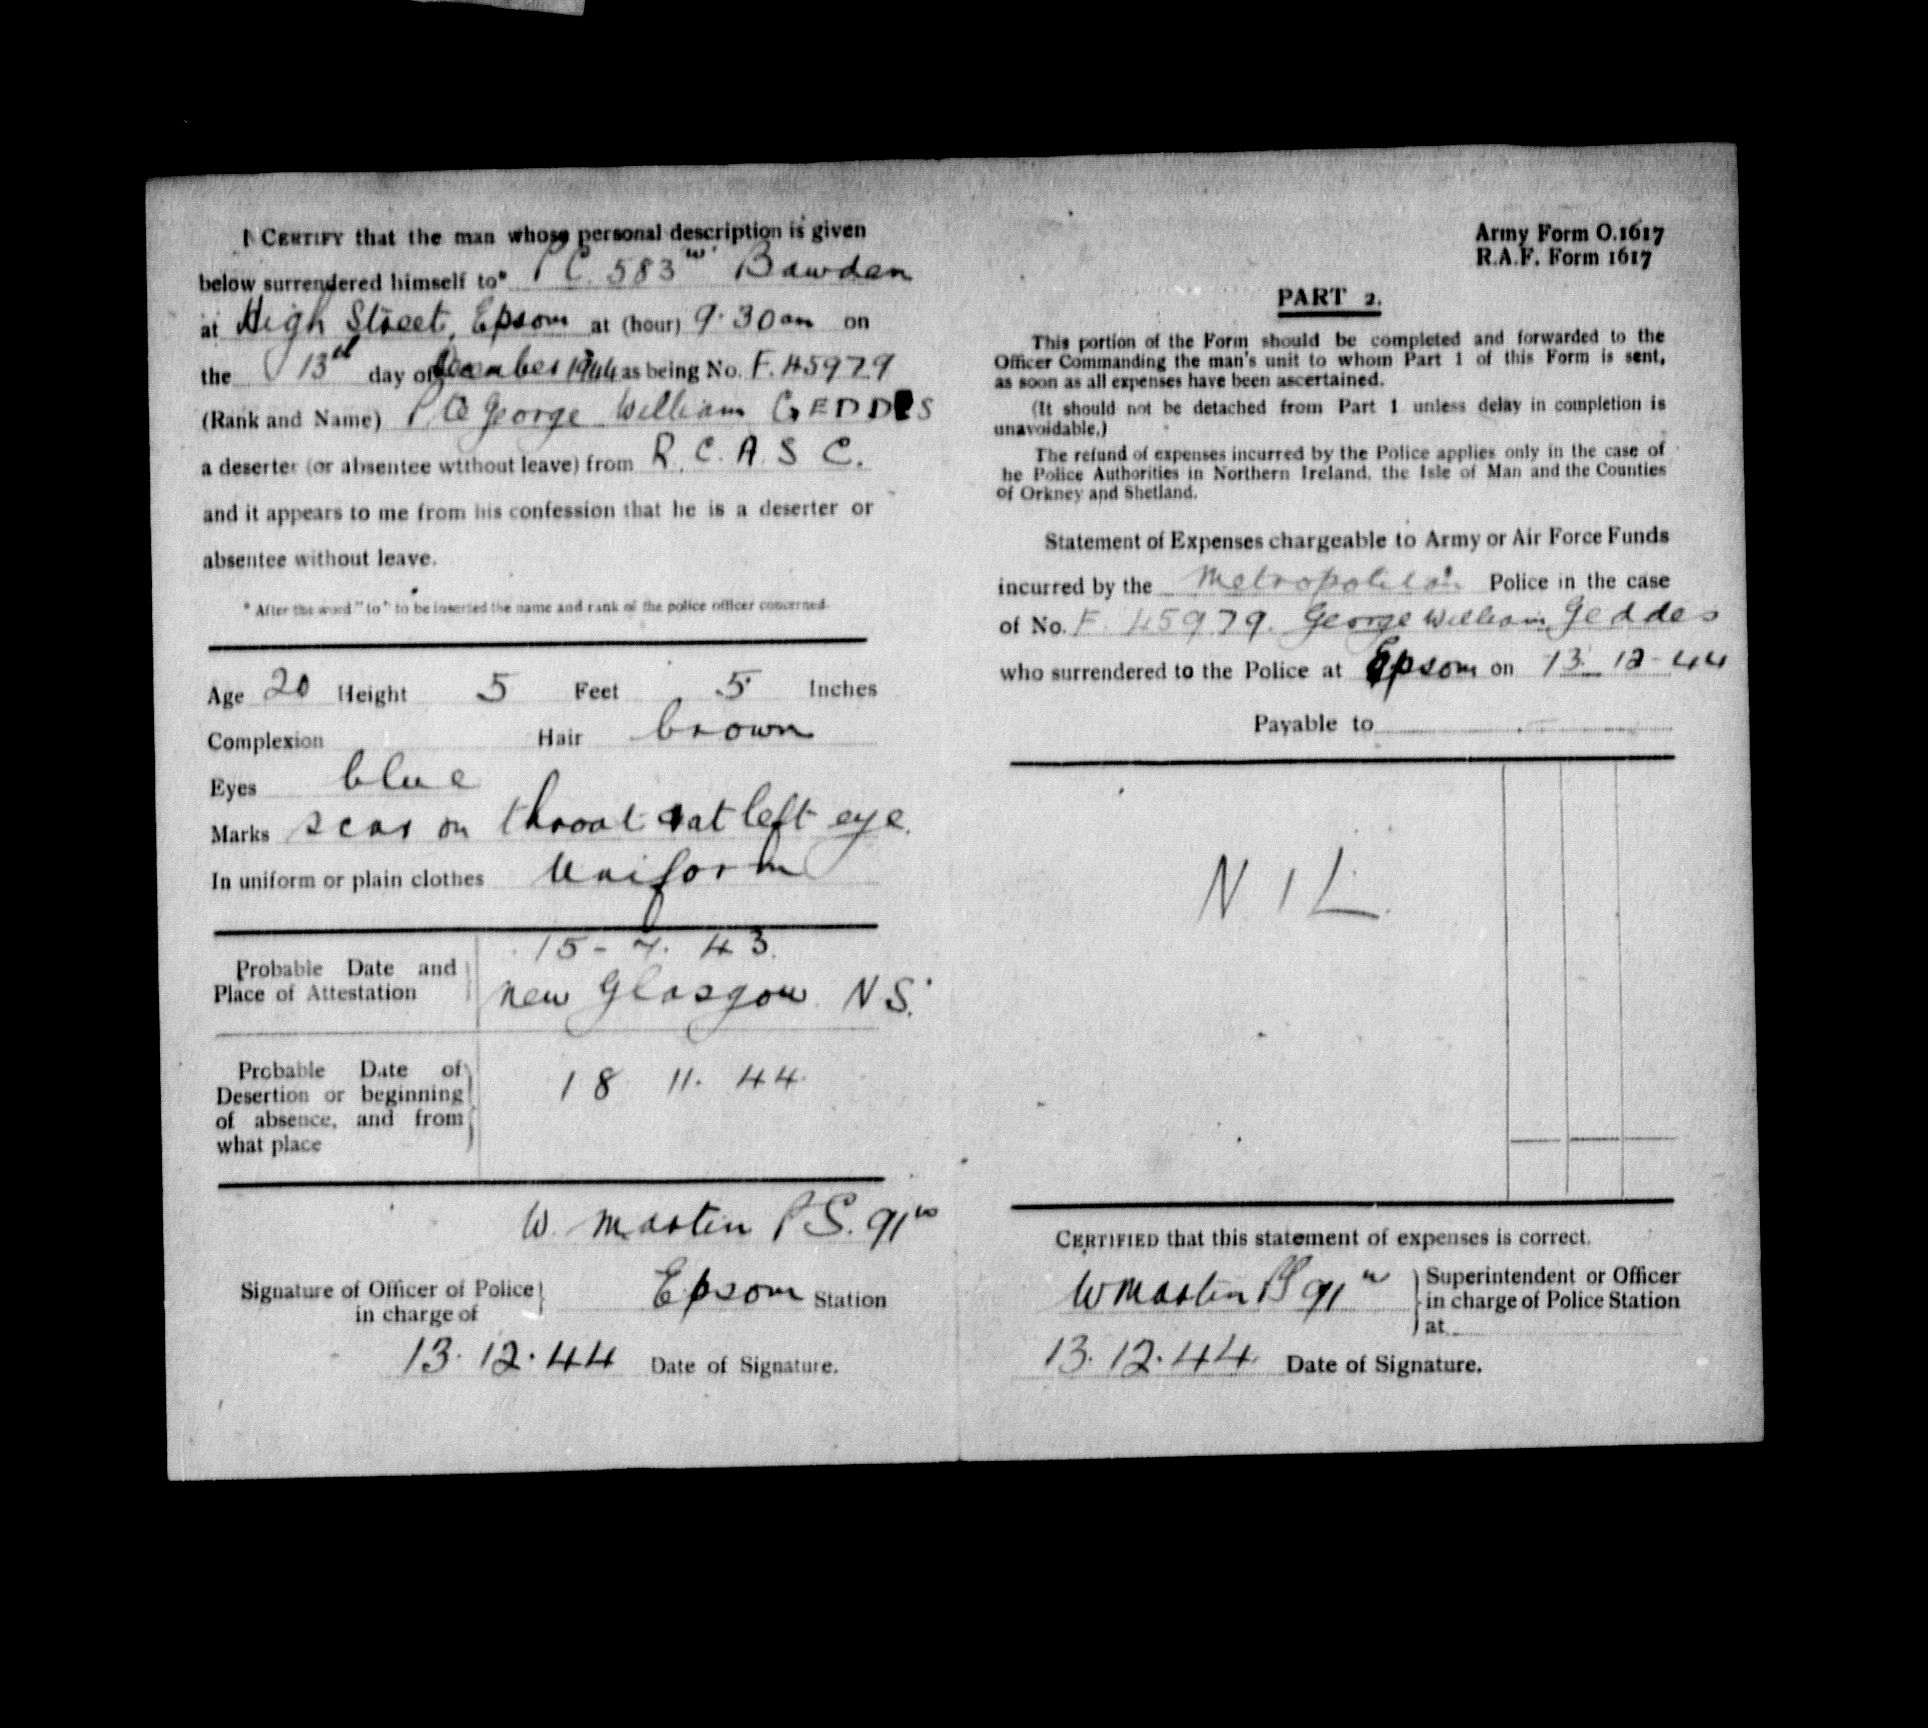 I CERTIFY that the man whose personal description is given
below surrendered himself to* PC. 583 "W" Bawden
at High Street, Epsom at (hour) 9.30am on
the 13th day of December 1944 as being No. F. 45979
(Rank and Name) Pte George William GEDDES
a deserter (or absentee without leave) from R. C. A. S. C.
and it appears to me from his confession that he is a deserter or
absentee without leave.
* After the word "to" to be inserted the name and rank of the police officer concerned.
Age 20 Height 5 Feet 5 Inches
Complexion Hair brown
Eyes blue
Marks scar on throat at left eye.
In uniform or plain clothes Uniform
Probable Date and
Place of Attestation
15-7. 43.
New Glasgow NS.
Probable Date of
Desertion or beginning
of absence, and from
what place
18 11. 44.
W. Martin PS. 91 W
Signature of Officer of Police
in charge of
Epsom Station
13. 12. 44 Date of Signature.
Army Form O.1617
R.A.F. Form 1617
PART 2.
This portion of the Form should be completed and forwarded to the
Officer Commanding the man's unit to whom Part 1 of this Form is sent,
as soon as all expenses have been ascertained.
(It should not be detached from Part 1 unless delay in completion is
unavoidable.)
The refund of expenses incurred by the Police applies only in the case of
he Police Authorities in Northern Ireland, the Isle of Man and the Counties
of Orkney and Shetland.
Statement of Expenses chargeable to Army or Air Force Funds
incurred by the Metropolitan Police in the case
of No. F. 45979. George William Geddes
who surrendered to the Police at Epsom on 13. 12-44
Payable to
NIL
CERTIFIED that this statement of expenses is correct.
W Martin PS 91 W
Superintendent or Officer
in charge of Police Station
at
13. 12. 44. Date of Signature.